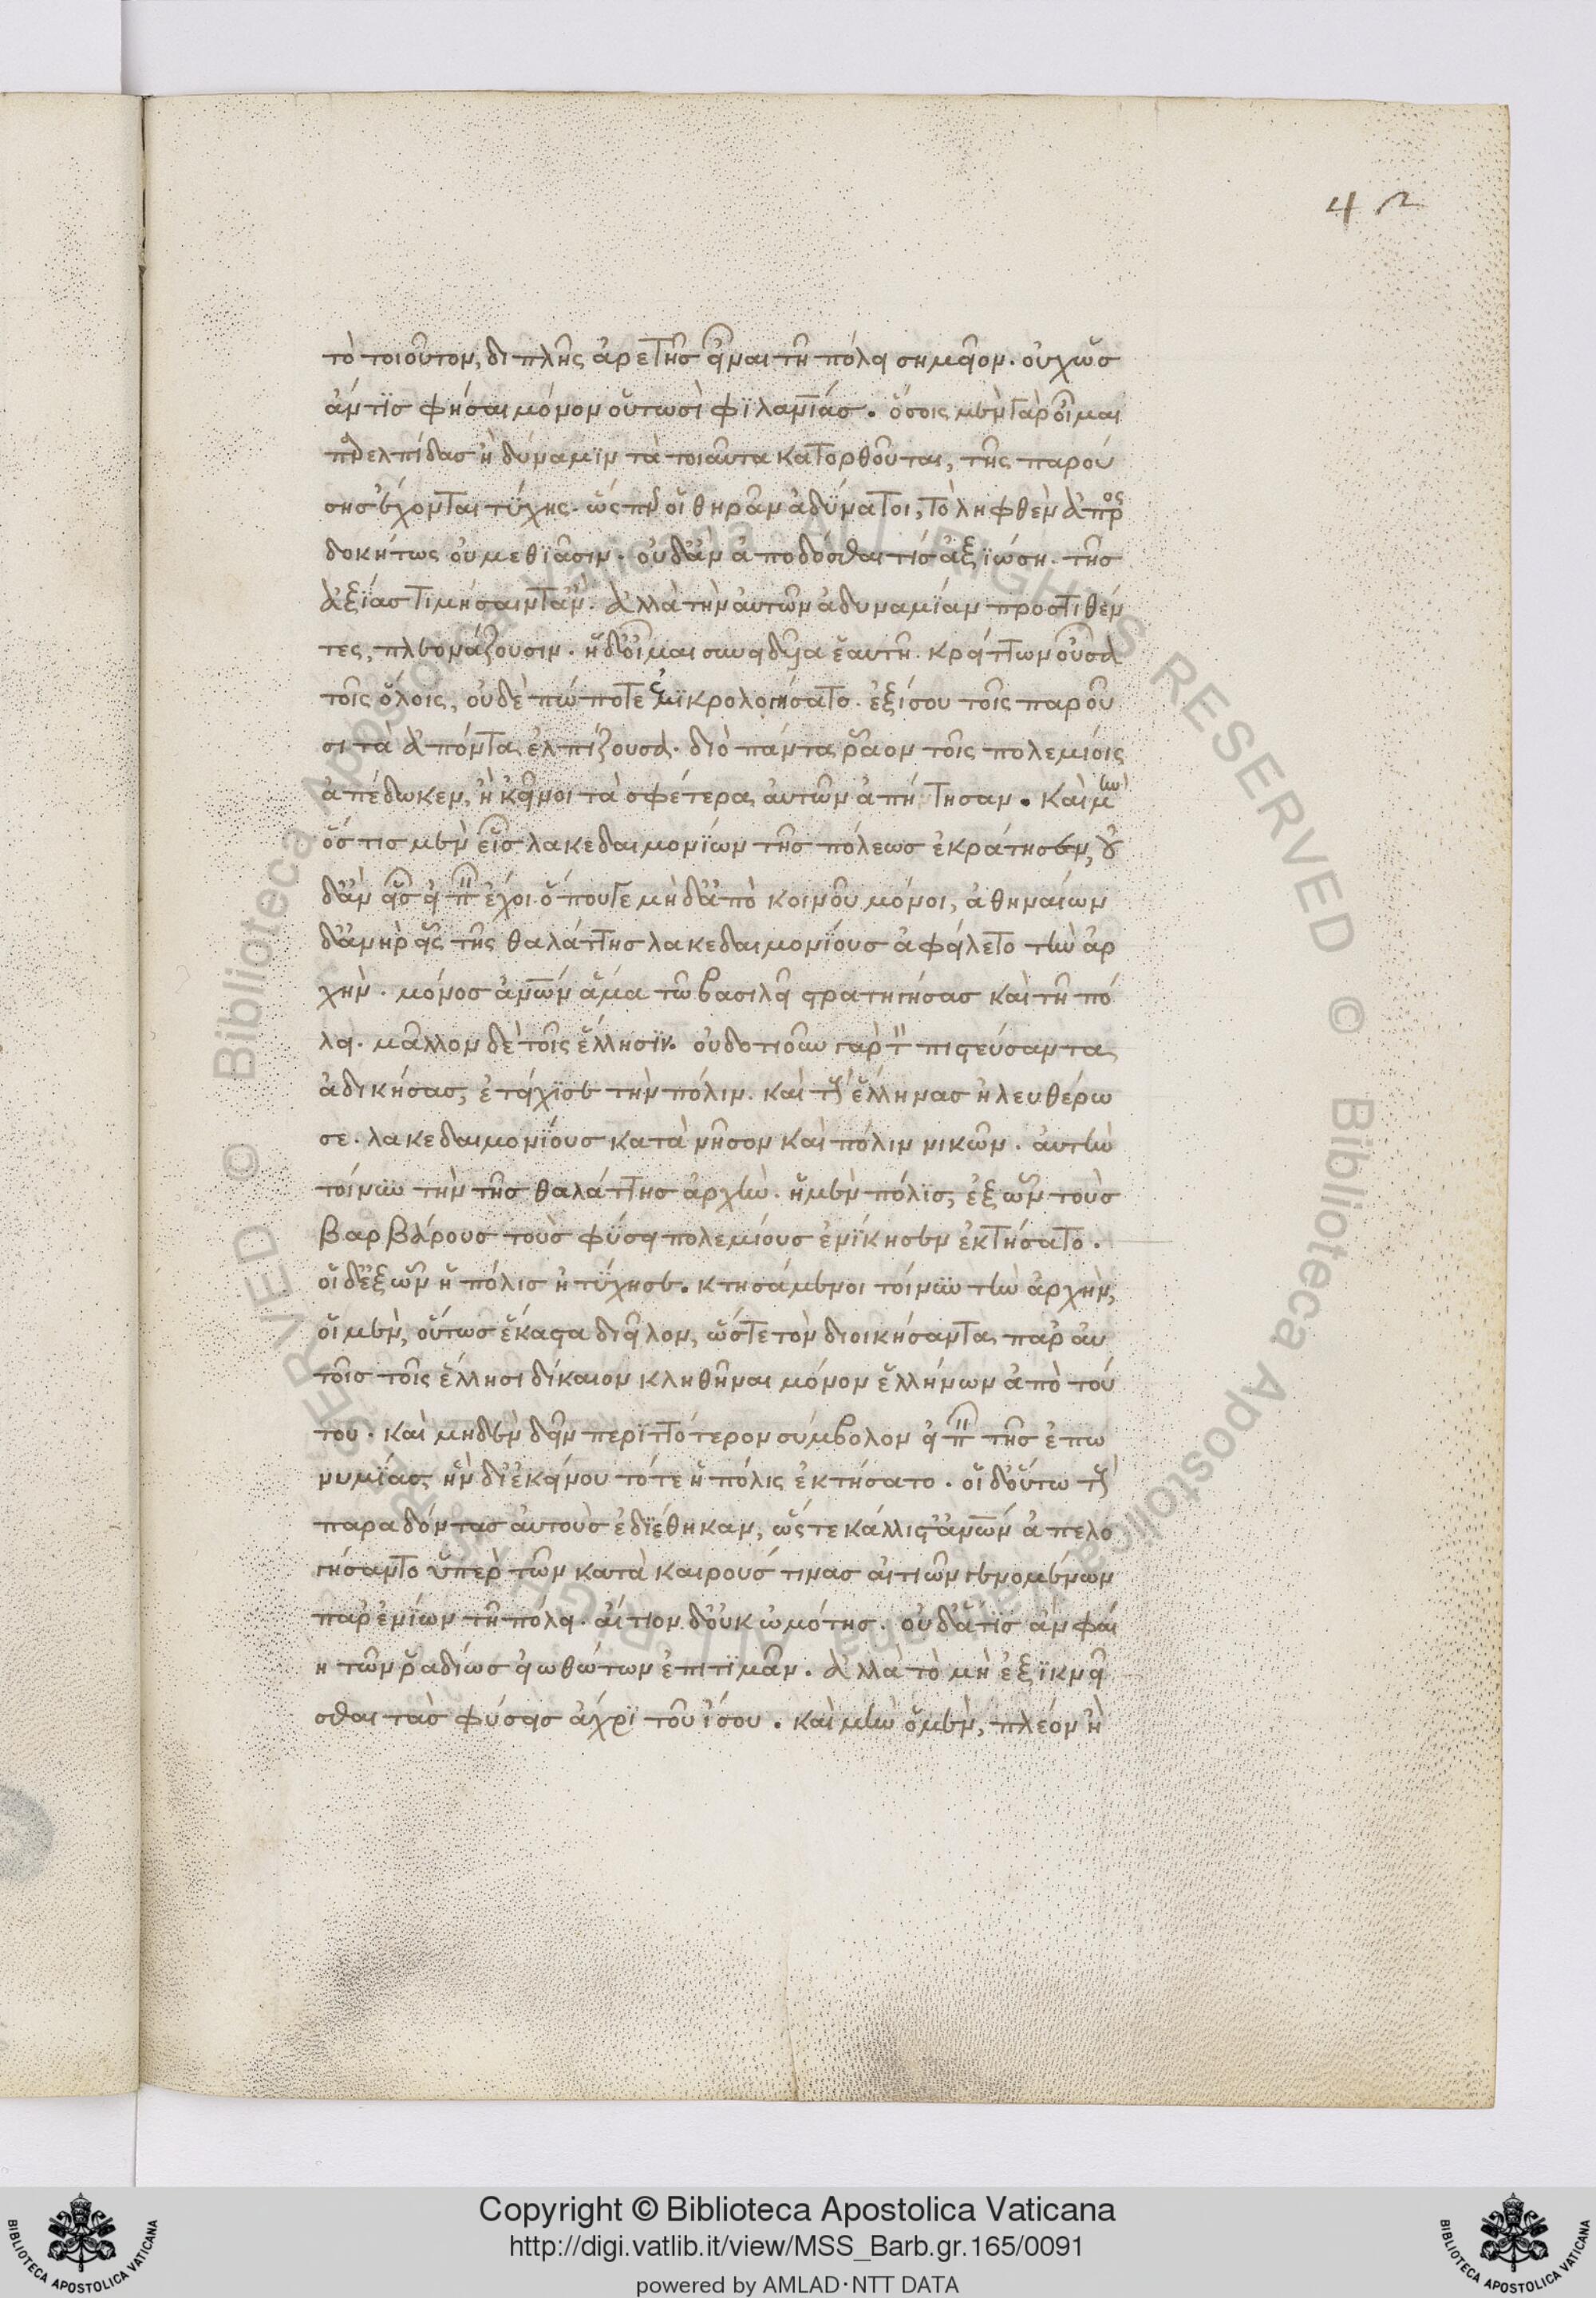 42
τὸ τοιοῦτον, διπλῆς ἀρετῆς εἶναι τῆ πόλει σημεῖον. οὐχ ὡς
ἄν τις φήσαι μόνον οὑτωσὶ φιλανίας. ὅσοις μὲν γὰρ οἶμαι
παρ ἐλπίδας ἢ δύναμιν τὰ τοιαῦτα κατορθοῦται, τῆς παρού
σης ἔχονται τύχης. ὥσπερ οἱ θηρᾶν ἀδύνατοι, τὸ ληφθὲν ἀπρος
δοκήτως οὐ μεθιᾶσιν. οὐδ ἂν ἀποδόσθαι τις ἀξιώση. τῆς
ἀξίας τιμήσαιντ ἄν. ἀλλὰ τὴν αὐτῶν ἀδυναμίαν προστιθέν
τες, πλεονάζουσιν. ἡ δ οἶμαι συνειδυῖα ἑαυτῆ. κρείττων οὖσα
τοῖς ὅλοις, οὐδὲ πώποτε ἐμικρολογήσατο. ἐξίσου τοῖς παροῦ
σι τὰ ἀπόντα ἐλπίζουσα. διὸ πάντα ῥᾶον τοῖς πολεμίοις
ἀπέδωκεν, ἢ κεῖνοι τὰ σφέτερα αὐτῶν ἀπήτησαν. καὶ μὴν
ὅστις μὲν εἷς λακεδαιμονίων τῆς πόλεως ἐκράτησεν, οὐ
δ ἂν εἷς εἰπεῖν ἔχοι. ὅπου γε μὴδ ἀπὸ κοινοῦ μόνοι, ἀθηναίων
δ ἀνὴρ εἷς τῆς θαλάττης λακεδαιμονίους ἀφείλετο τὴν ἀρ
χήν. μόνος ἀνων ἅμα τῶ βασιλεῖ στρατηγήσας καὶ τῆ πό
λει. μᾶλλον δὲ τοῖς ἕλλησιν. οὐδοτιοῦν γὰρ τὸν πιστεύσαντα
ἀδικήσας, ἐτείχισε τὴν πόλιν. καὶ τοὺς ἕλληνας ἠλευθέρω
σε. λακεδαιμονίους κατὰ νῆσον καὶ πόλιν νικῶν. αὐτὴν
τοίνυν τὴν τῆς θαλάττης ἀρχὴν. ἡ μὲν πόλις, ἐξ ὧν τοὺς
βαρβάρους τοὺς φύσει πολεμίους ἐνίκησεν ἐκτήσατο.
οἱ δ ἐξ ὧν ἡ πόλις ἠτύχησε. κτησάμενοι τοίνυν τὴν ἀρχὴν,
οἱ μὲν, οὕτως ἕκαστα διεῖλον, ὥστε τὸν διοικήσαντα παρ αυ
τοῖς τοῖς ἕλλησι δίκαιον κληθῆναι μόνον ἑλλήνων ἀπὸ τού
του. καὶ μηδὲν δεῖν περιττότερον σύμβολον εἰπεῖν τῆς ἐπω
νυμίας, ἣν δι ἐκείνου τότε ἡ πόλις ἐκτήσατο. οἱ δ οὕτω τοὺς
παραδόντας αὐτοὺς ἐδιέθηκαν, ὥστε κάλλιστ ἀνων ἀπελο
γήσαντο ὑπὲρ τῶν κατὰ καιρούς τινας αἰτιῶν γενομένων
παρ ἐνίων τῆ πόλει. αἴτιον δ οὐκ ὠμότης. οὐδ ἅ τις ἂν φαί
η τῶν ῥαδίως εἰωθότων ἐπιτιμᾶν. ἀλλὰ τὸ μὴ ἐξικνεῖ
σθαι τὰς φύσεις ἄχρι τοῦ ἴσου. καὶ μὴν ὁ μὲν, πλέον ἢ
Copyright © Biblioteca Apostolica Vaticana
http://digi.vatlib.it/view/MSS_Barb.gr.165/0091
powered by AMLAD·NTT DATA